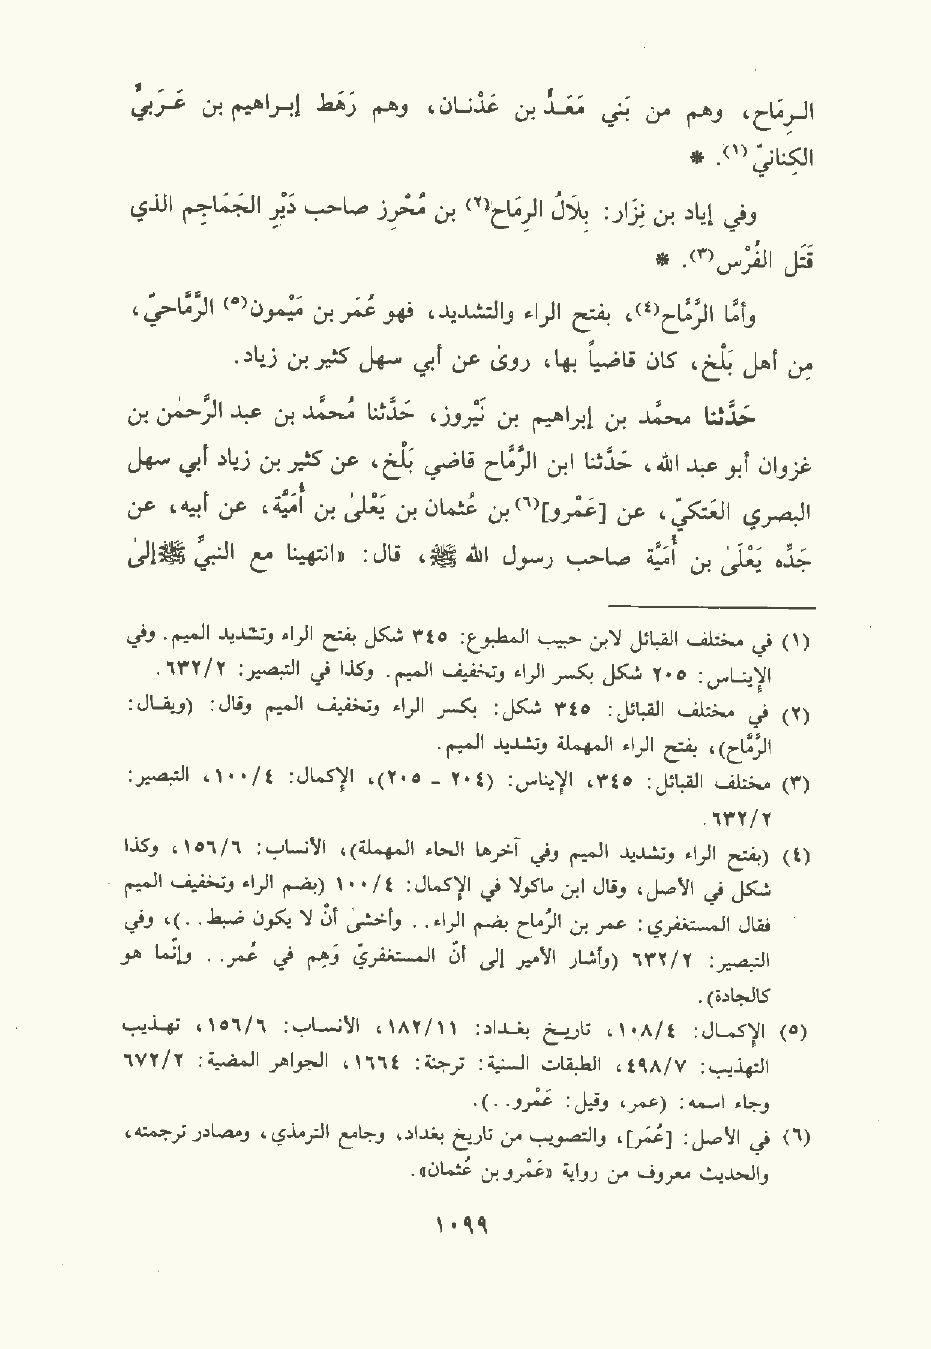 الرِمَاح، وهم من بَني مَعَدّ بن عَدْنان، وهم رَهَط إبراهيم بن عَرَبيٍّ
الكِنانيّ (١). *
وفي إياد بن نِزار: بِلاَلُ الرِمَاح(٢) بن مُحْرِز صاحب دَيْرِ الجَمَاجِم الذي
قَتَل الفُرْس(٣). *
وأمّا الرَّمَّاح(٤)، بفتح الراء والتشديد، فهو عُمَر بن مَيْمون(٥) الرَّمَّاحيّ،
مِن أهل بَلْخ، كان قاضياً بها، روىٰ عن أبي سهل كثير بن زياد.
حَدّثنا محمّد بن إبراهيم بن نَيْروز، حَدّثنا مُحمّد بن عبد الرَّحمٰن بن
غزوان أبو عبد الله، حَدّثنا ابن الرَّمَّاح قاضي بَلْخ، عن كثير بن زياد أبي سهل
البصري العَتَكيّ، عن [عَمْرو](٦) بن عُثمان بن يَعْلىٰ بن أُمَيَّة، عن أبيه، عن
جَدّه يَعْلَىٰ بن أُمَيَّة صاحب رسول الله ﷺ، قال: «انتهينا مع النبيّ ﷺ إلىٰ
(١) في مختلف القبائل لابن حبيب المطبوع: ٣٤٥ شكل بفتح الراء وتشديد الميم. وفي
الإيناس: ٢٠٥ شكل بكسر الراء وتخفيف الميم. وكذا في التبصير: ٦٣٢/٢.
(٢) في مختلف القبائل: ٣٤٥ شكل: بكسر الراء وتخفيف الميم وقال: (ويقال:
الرَّمّاح)، بفتح الراء المهملة وتشديد الميم.
(٣) مختلف القبائل: ٣٤٥، الإيناس: (٢٠٤ - ٢٠٥)، الإكمال: ١٠٠/٤، التبصير:
٦٣٢/٢.
(٤) (بفتح الراء وتشديد الميم وفي آخرها الحاء المهملة)، الأنساب: ١٥٦/٦، وكذا
شكل في الأصل، وقال ابن ماكولا في الإكمال: ١٠٠/٤ (بضم الراء وتخفيف الميم
فقال المستغفري: عمر بن الرُماح بضم الراء.. وأخشىٰ أنْ لا يكون ضبط..)، وفي
التبصير: ٦٣٢/٢ (وأشار الأمير إلى أنّ المستغفريّ وَهِم في عُمر.. وإنّما هو
كالجادة).
(٥) الإكمال: ١٠٨/٤، تاريخ بغداد: ١٨٢/١١، الأنساب: ١٥٦/٦، تهذيب
التهذيب: ٤٩٨/٧، الطبقات السنية: ترجمة: ١٦٦٤، الجواهر المضية: ٦٧٢/٢
وجاء اسمه: (عمر، وقيل: عَمْرو..).
(٦) في الأصل: [عُمَر]، والتصويب من تاريخ بغداد، وجامع الترمذي، ومصادر ترجمته،
والحديث معروف من رواية «عَمْرو بن عُثمان».
١٠٩٩